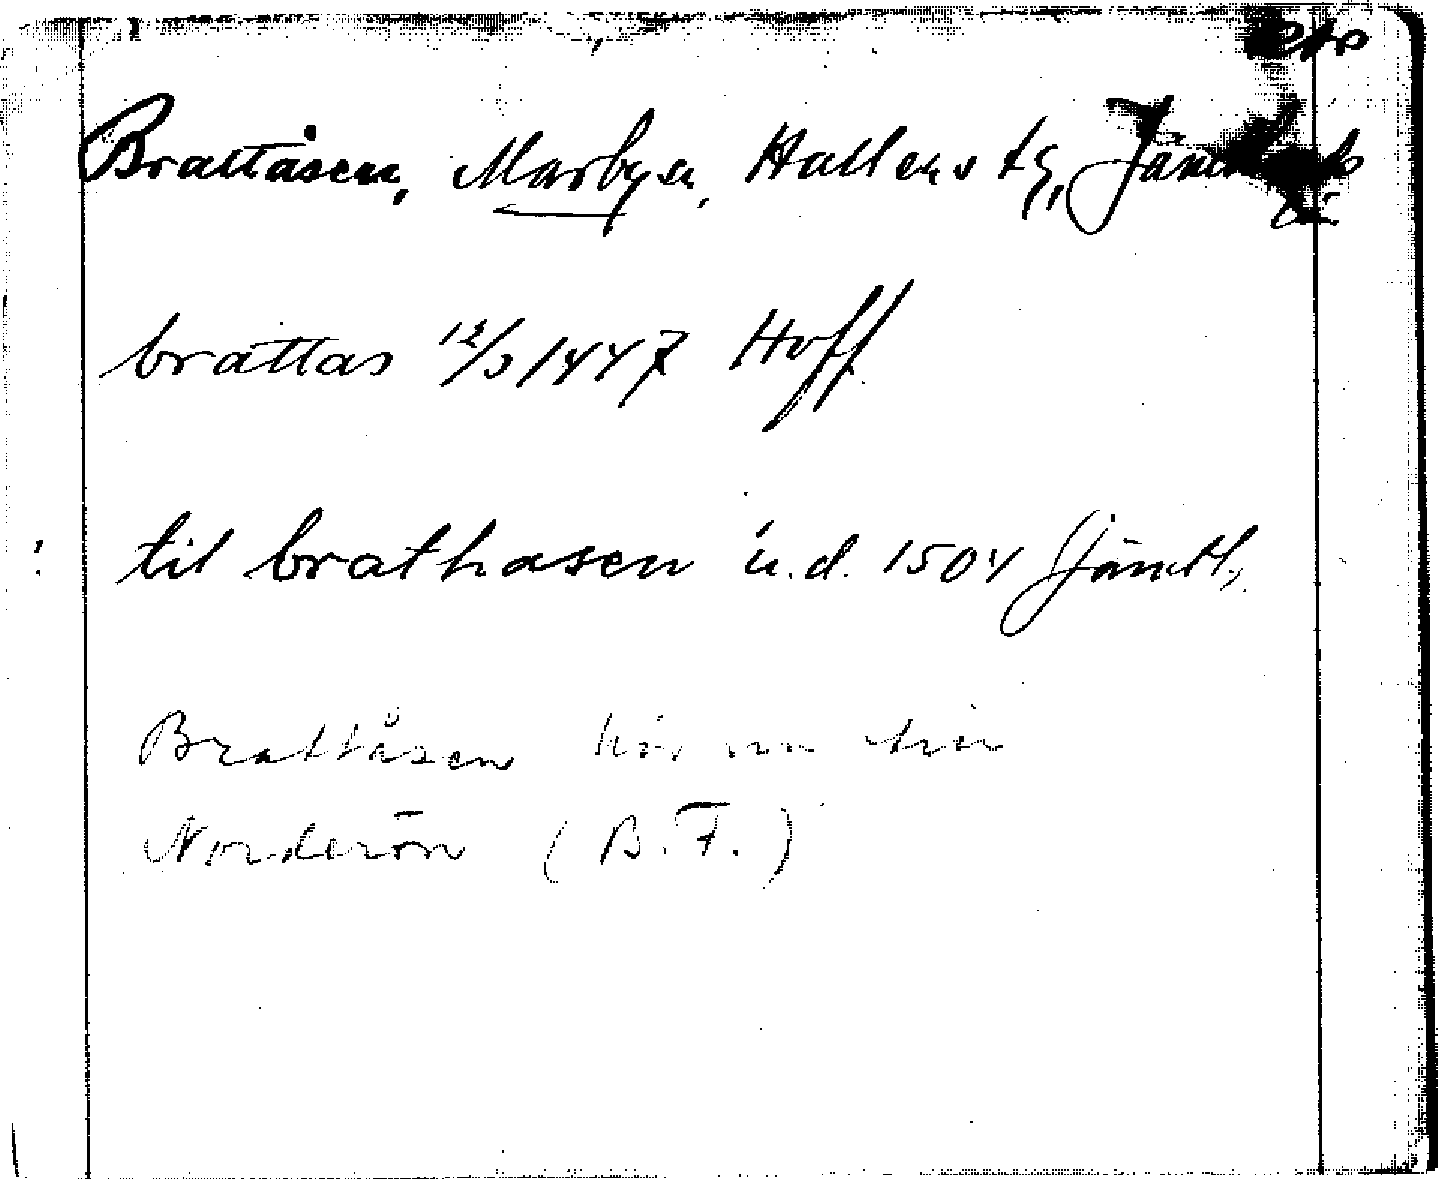 Brattåsen, Marbyn, Hallens tg, Jämtl
brattas 12/3 1447 Hoff
til brathasen u.d. 1504 Jämtl.
Brattåsen hör nu till
Norderön (B.F.)